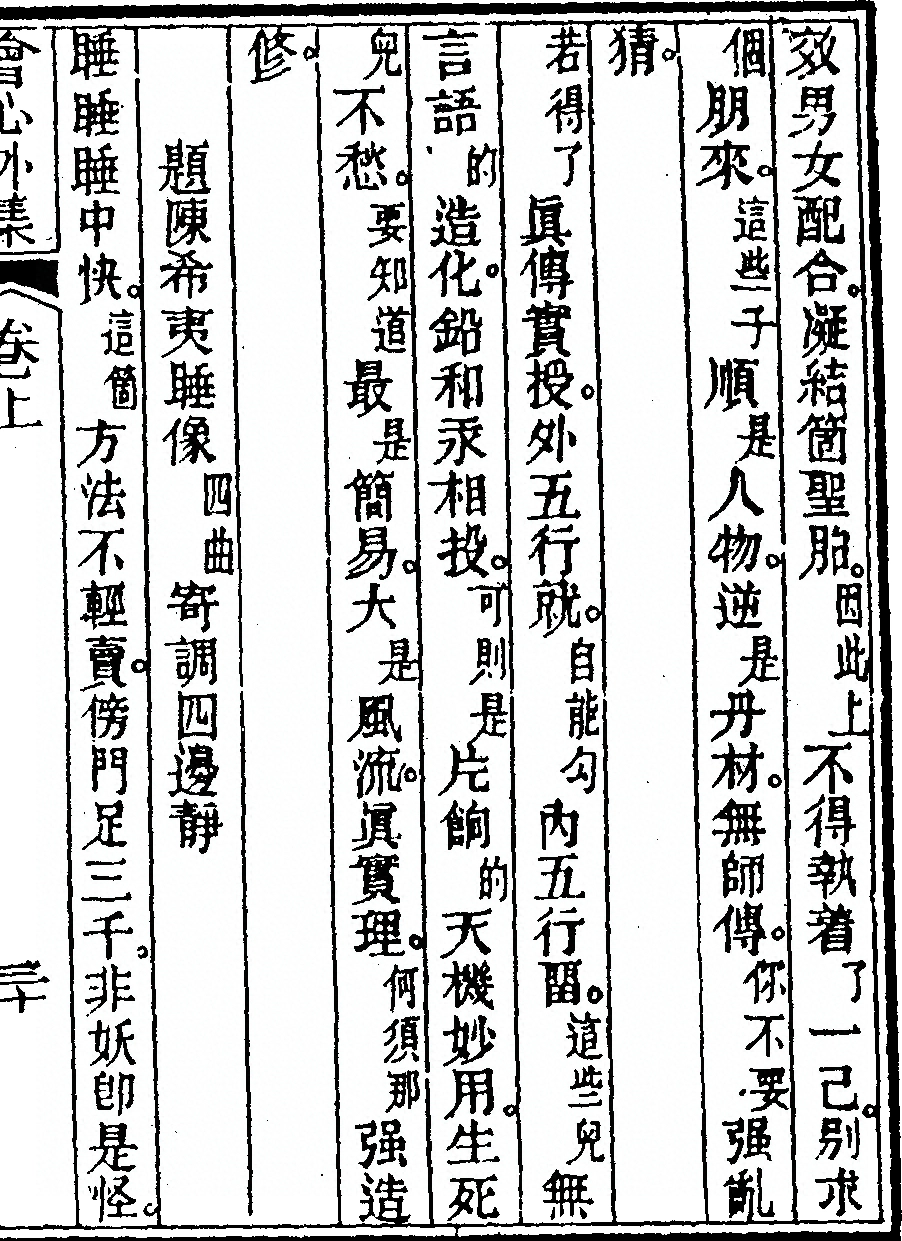 效男女配合。凝結箇聖胎。因此上不得執着了一己。別求
個朋來。這些子順是人物。逆是丹材。無師傳。你不要强亂
猜。
若得了眞傳實授。外五行就。自能勾內五行畱。這些兒無
言語的造化。鉛和汞相投。可則是片餉的天機妙用。生死
兒不愁。要知道最是簡易。大是風流。眞實理。何須那强造
修。
題陳希夷睡像四曲寄調四邊靜
睡睡睡中快。這箇方法不輕賣。傍門足三千。非妖卽是怪。
會心外集 卷上 三十